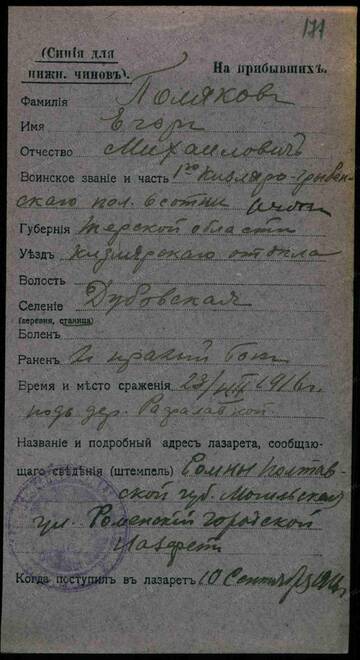 171
(Синія для
нижн. чиновъ).
На прибывшихъ.
Фамилія Поляковъ
Имя Егоръ
Отчество Михаиловичъ
Воинское званіе и часть 1го Кизляро-Гребен-
скаго пол. 6 сотни
Губернія Терской области
Уѣздъ Кизлярскаго отдѣла
Волость
Селеніе Дубовская
(деревня, станица)
Боленъ
Раненъ правый бокъ
Время и мѣсто сраженія 23/VIII 1916 г.
подъ дер.
Названіе и подробный адресъ лазарета, сообщаю-
щаго свѣдѣнія (штемпель) Ромны Полтав-
ской губ.
ул. Роменскій Городской
Лазаретъ
Когда поступилъ въ лазаретъ 10 Сентября 1916 г.